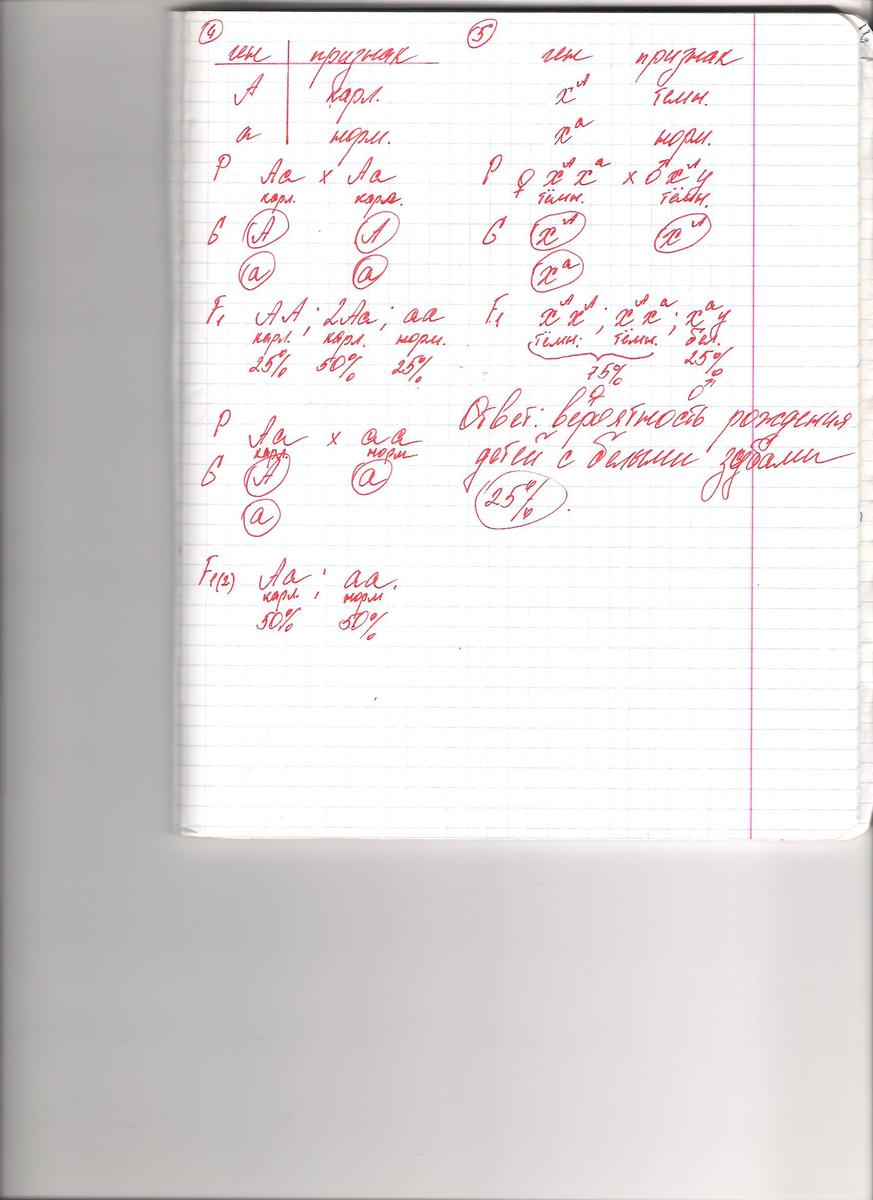 4
ген признак
А карл.
а норм.
P Аа х Аа
карл. карл.
G А А
а а
F₁ АА ; 2Аа ; аа
карл. карл. норм.
25% 50% 25%
P Аа х аа
карл. норм
G А а
а
F₁(2) Аа ; аа.
карл. норм
50% 50%
5
ген признак
xᴬ темн.
xᵃ норм.
P ♀ xᴬxᵃ x ♂ xᴬy
тёмн. тёмн.
G xᴬ xᴬ
xᵃ
F₁ xᴬxᴬ ; xᴬxᵃ ; xᵃy
тёмн. тёмн. бел.
75% 25%
♀ ♂
Ответ: вероятность рождения
детей с белыми зубами
25%.